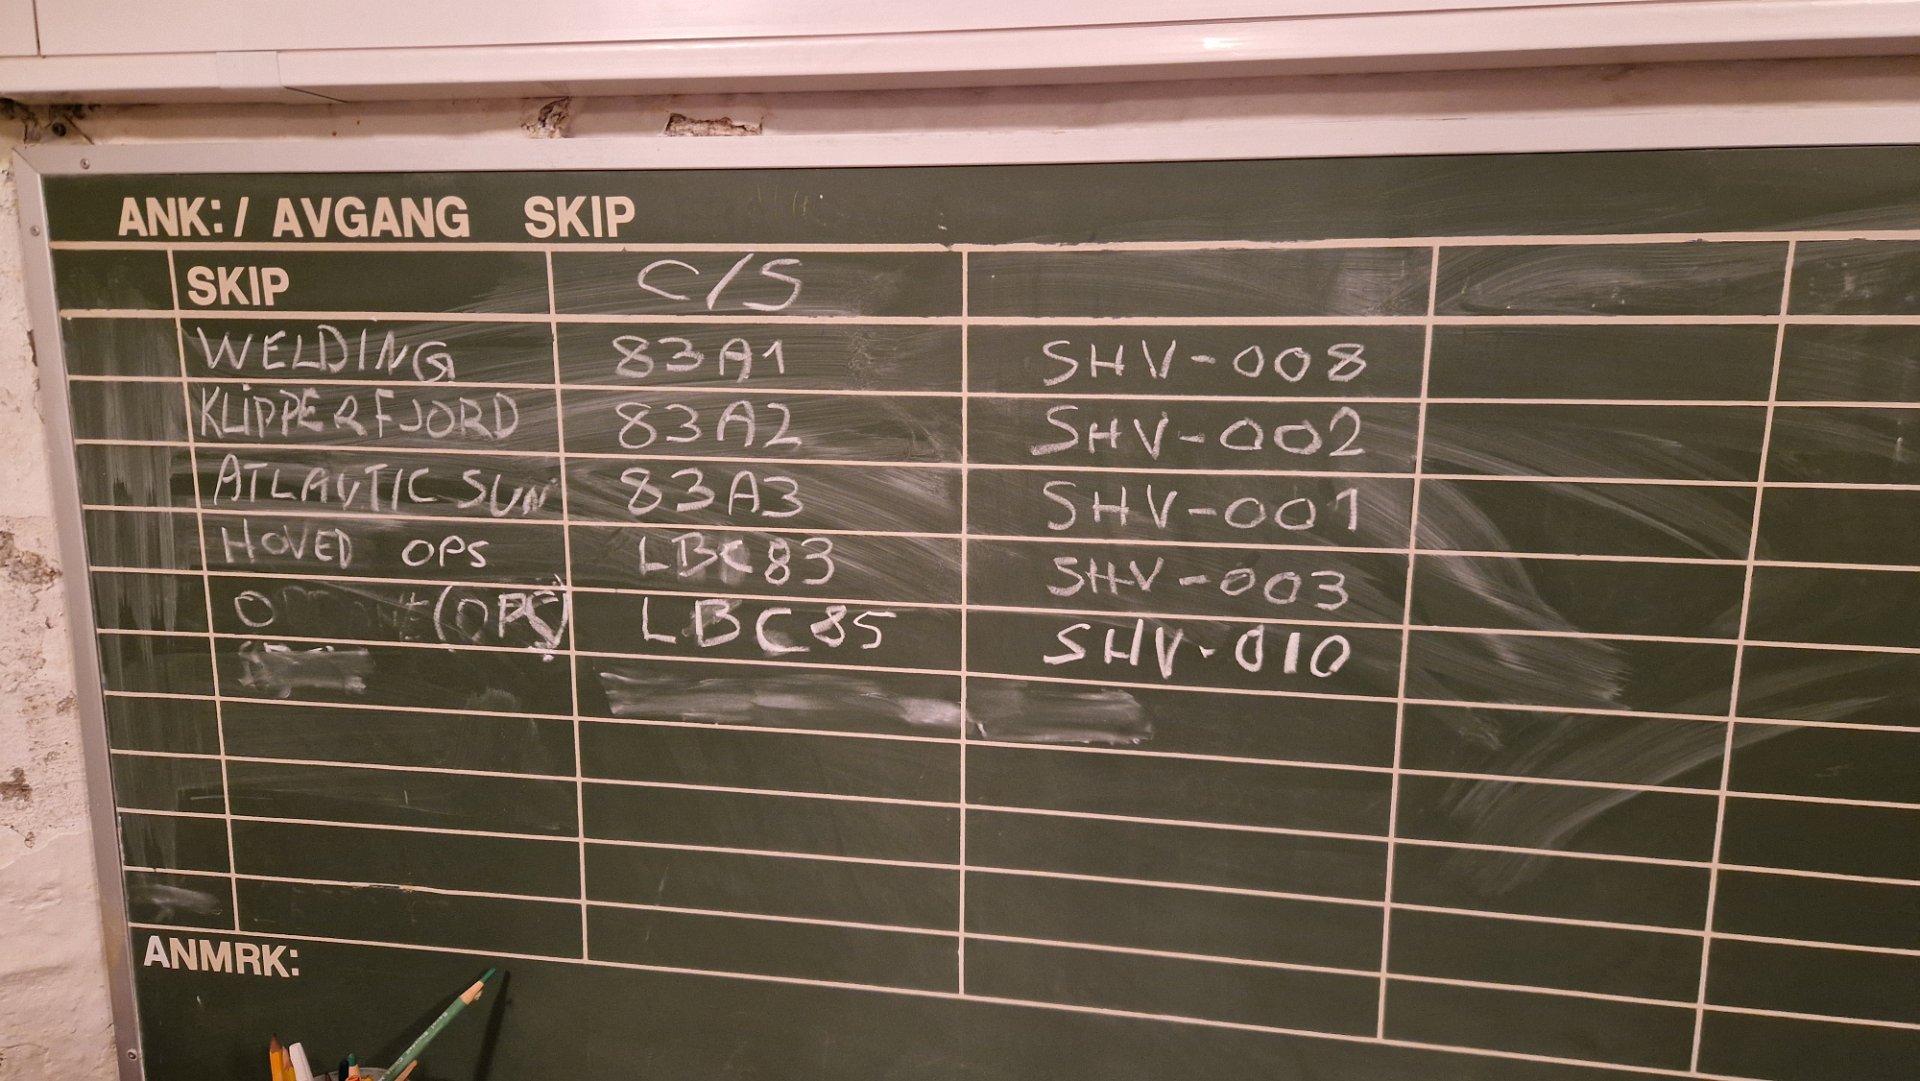 ANK:/ AVGANG SKIP
SKIP C/S
WELDING 83A1 SHV-008
KLIPPERFJORD 83A2 SHV-002
ATLAVTIC SUN 83A3 SHV-001
HOVED OPS LBC83 SHV-003
(OPS) LBC85 SHV-010
ANMRK: